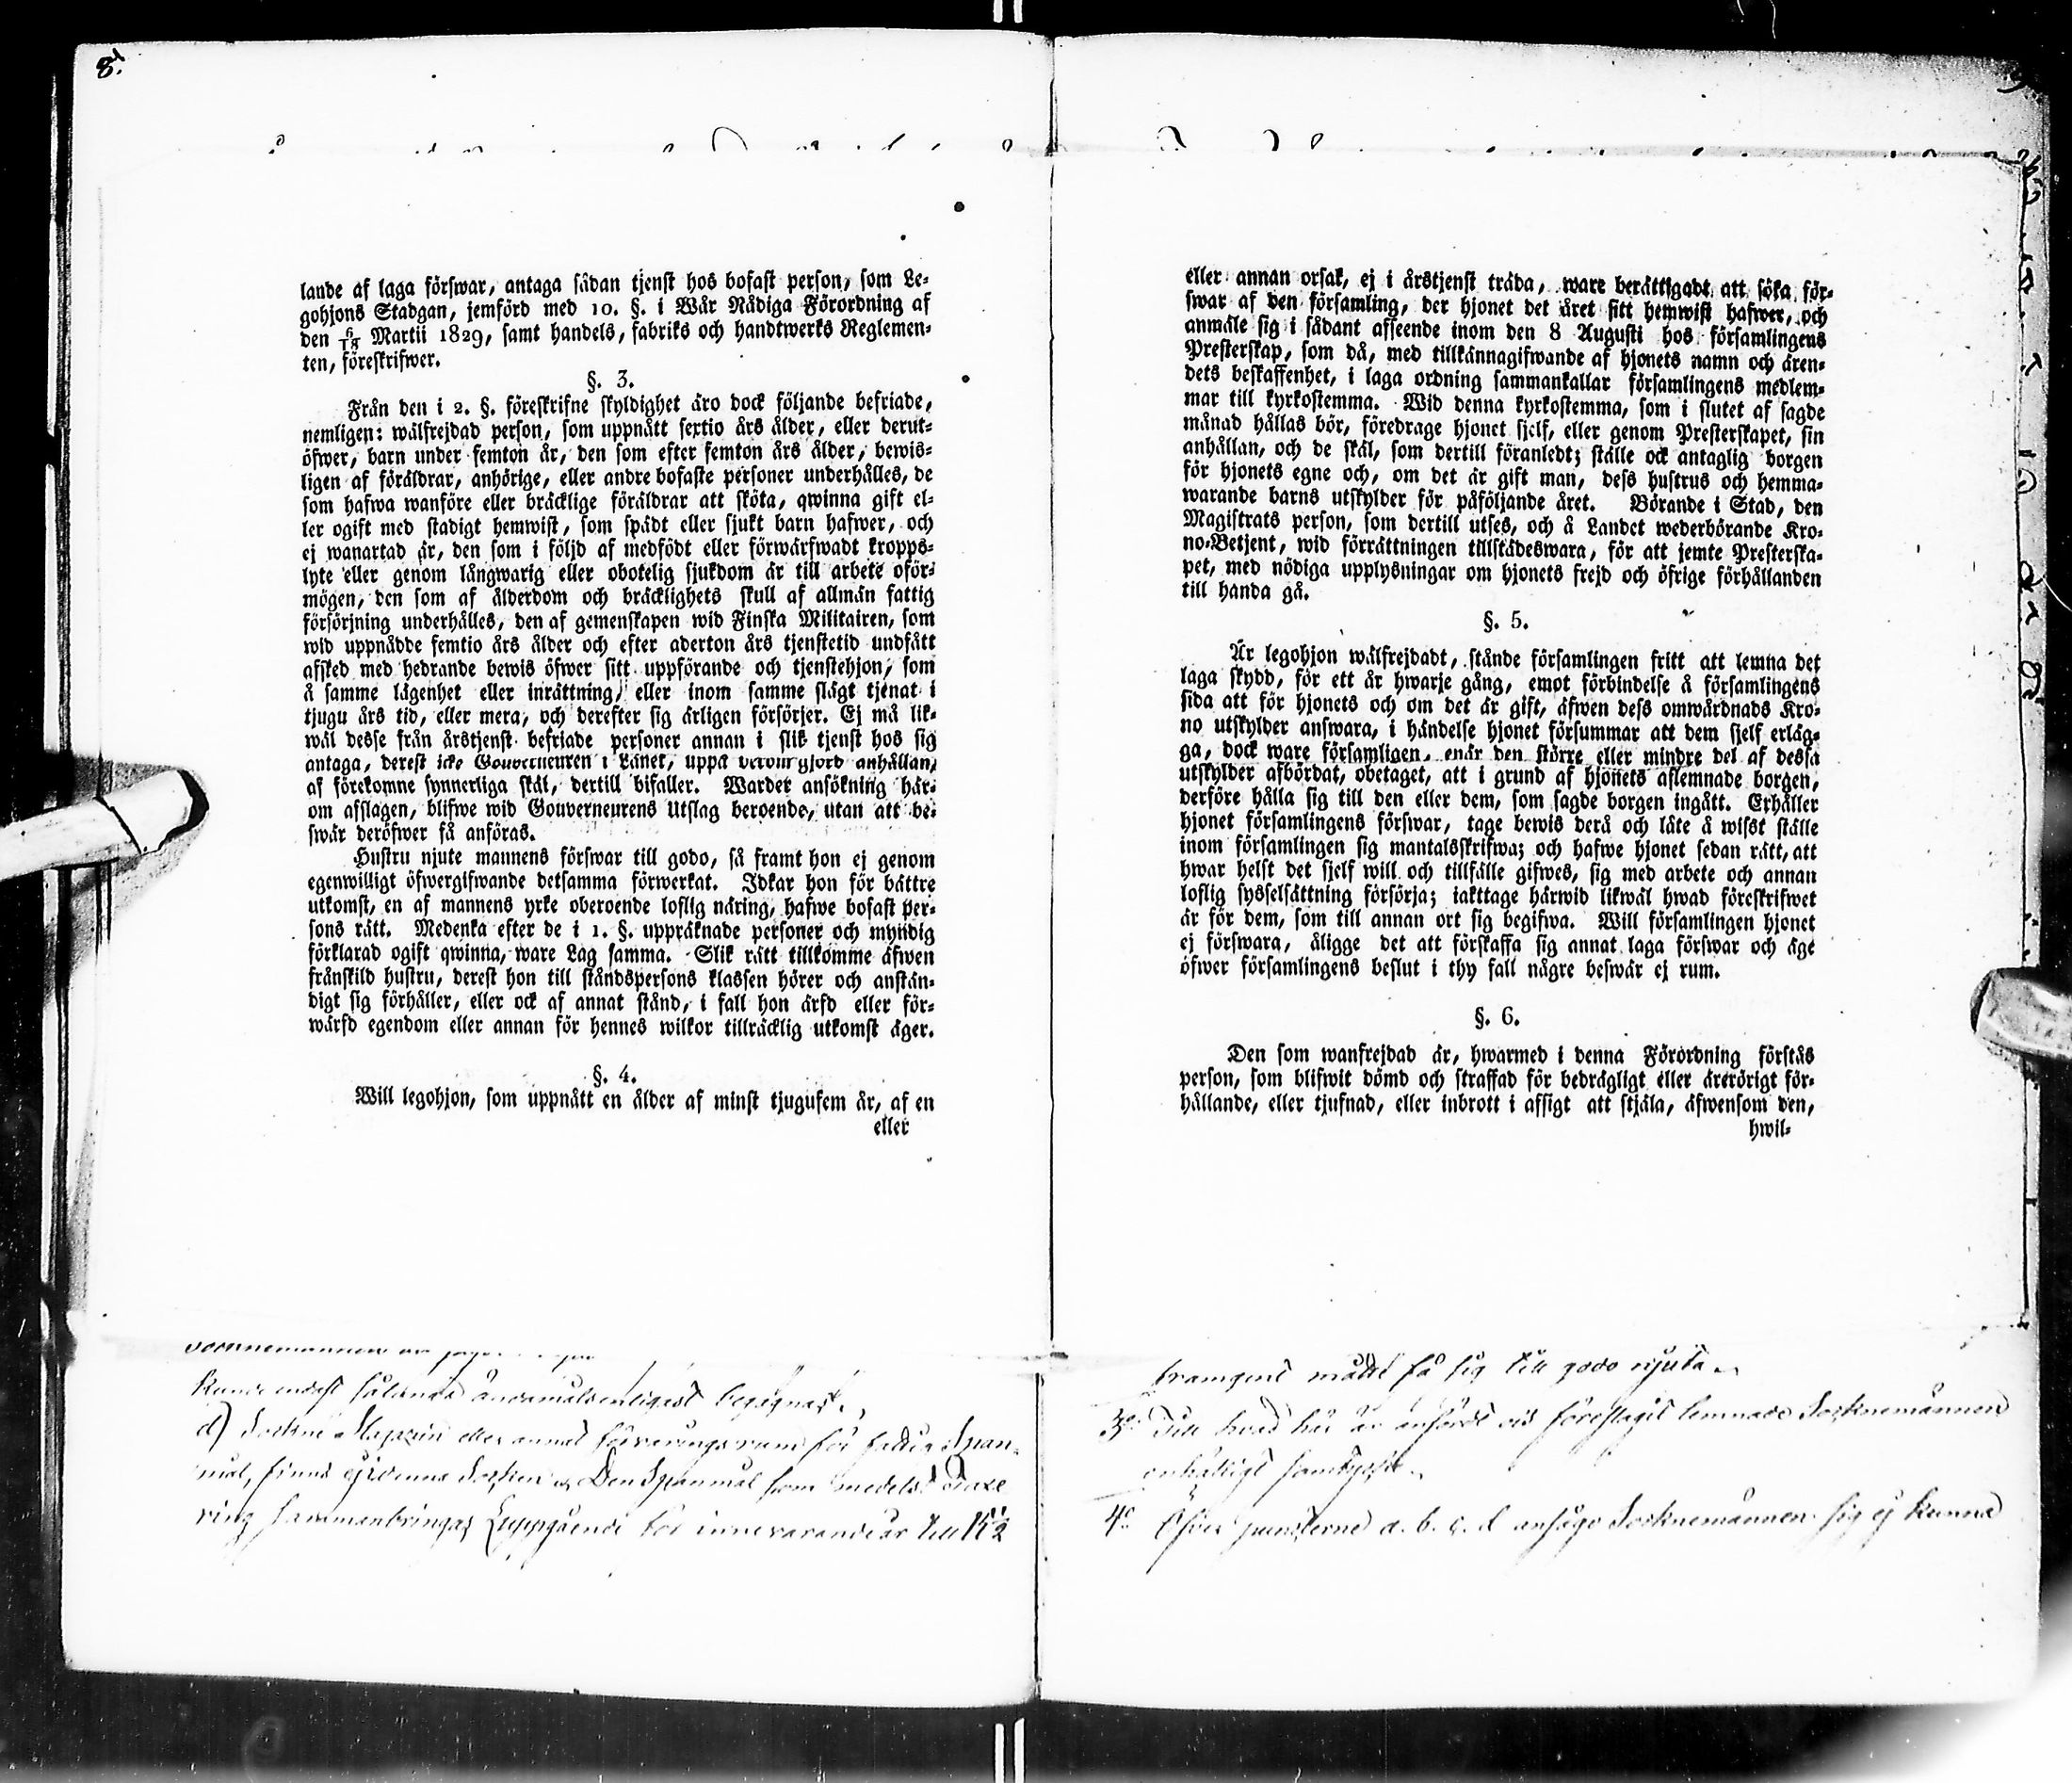 8.
lande af laga förswar, antaga sådan tjenst hos bofast person, som Le-
gohjons Stadgan, jemförd med 10. §. i Wår Nådiga Förordning af
den 6/18 Martii 1829, samt handels, fabriks och handtwerks Reglemen-
ten, föreskrifwer.
§. 3.
Från den i 2. §. föreskrifne skyldighet äro dock följande befriade,
nemligen: wälfrejdad person, som uppnått sextio års ålder, eller derut-
öfwer, barn under femton år, den som efter femton års ålder, bewis-
ligen af föräldrar, anhörige, eller andre bofaste personer underhålles, de
som hafwa wanföre eller bräcklige föräldrar att sköta, qwinna gift el-
ler ogift med stadigt hemwist, som spädt eller sjukt barn hafwer, och
ej wanartad är, den som i följd af medfödt eller förwärfwadt kropps-
lyte eller genom långwarig eller obotelig sjukdom är till arbete oför-
mögen, den som af ålderdom och bräcklighets skull af allmän fattig
försörjning underhålles, den af gemenskapen wid Finska Militairen, som
wid uppnådde femtio års ålder och efter aderton års tjenstetid undfått
afsked med hedrande bewis öfwer sitt uppförande och tjenstehjon, som
å samme lägenhet eller inrättning, eller inom samme slägt tjenat i
tjugu års tid, eller mera, och derefter sig ärligen försörjer. Ej må lik-
wäl desse från årstjenst befriade personer annan i slik tjenst hos sig
antaga, derest icke Gouverneuren i Länet, uppå derom gjord anhållan,
af förekomne synnerliga skäl, dertill bifaller. Warder ansökning här-
om afslagen, blifwe wid Gouverneurens Utslag beroende, utan att be-
swär deröfwer få anföras.
Hustru njute mannens förswar till godo, så framt hon ej genom
egenwilligt öfwergifwande detsamma förwerkat. Idkar hon för bättre
utkomst, en af mannens yrke oberoende loflig näring, hafwe bofast per-
sons rätt. Medenka efter de i 1. §. uppräknade personer och myndig
förklarad ogift qwinna, ware Lag samma. Slik rätt tillkomme äfwen
frånskild hustru, derest hon till ståndspersons klassen hörer och anstän-
digt sig förhåller, eller ock af annat stånd, i fall hon ärfd eller för-
wärfd egendom eller annan för hennes wilkor tillräcklig utkomst äger.
§. 4.
Will legohjon, som uppnått en ålder af minst tjugufem år, af en
eller
kunde endast sålunda ändamålsenligast begagnas.
d) Sockne Magazin eller annat förvaringsrum för Span-
mål, finnes ej i denna Socken Den Spanmål som medelst
ring sammanbringas uppgående för innevarande år till 15 1/2
eller annan orsak, ej i årstjenst träda, ware berättigadt att söka för-
swar af den församling, der hjonet det året sitt hemwist hafwer, och
anmäle sig i sådant afseende inom den 8 Augusti hos församlingens
Presterskap, som då, med tillkännagifwande af hjonets namn och ären-
dets beskaffenhet, i laga ordning sammankallar församlingens medlem-
mar till kyrkostemma. Wid denna kyrkostemma, som i slutet af sagde
månad hållas bör, föredrage hjonet sjelf, eller genom Presterskapet, sin
anhållan, och de skäl, som dertill föranledt; ställe ock antaglig borgen
för hjonets egne och, om det är gift man, dess hustrus och hemma-
warande barns utskylder för påföljande året. Börande i Stad, den
Magistrats person, som dertill utses, och å Landet wederbörande Kro-
no-Betjent, wid förrättningen tillstädeswara, för att jemte Presterska-
pet, med nödiga upplysningar om hjonets frejd och öfrige förhållanden
till handa gå.
§. 5.
Är legohjon wälfrejdadt, stånde församlingen fritt att lemna det
laga skydd, för ett år hwarje gång, emot förbindelse å församlingens
sida att för hjonets och om det är gift, äfwen dess omwårdnads Kro-
no utskylder answara, i händelse hjonet försummar att dem sjelf erläg-
ga, dock ware församlingen, enär den större eller mindre del af dessa
utskylder afbördat, obetaget, att i grund af hjonets aflemnade borgen,
derföre hålla sig till den eller dem, som sagde borgen ingått. Erhåller
hjonet församlingens förswar, tage bewis derå och låte å wisst ställe
inom församlingen sig mantalsskrifwa; och hafwe hjonet sedan rätt, att
hwar helst det sjelf will och tillfälle gifwes, sig med arbete och annan
loflig sysselsättning försörja; iakttage härwid likwäl hwad föreskrifwet
är för dem, som till annan ort sig begifwa. Will församlingen hjonet
ej förswara, åligge det att förskaffa sig annat laga förswar och äge
öfwer församlingens beslut i thy fall någre beswär ej rum.
§. 6.
Den som wanfrejdad är, hwarmed i denna Förordning förstås
person, som blifwit dömd och straffad för bedrägligt eller ärerörigt för-
hållande, eller tjufnad, eller inbrott i afsigt att stjäla, äfwensom den,
hwil-
framgent måtte få sig till godo njuta.
3o Till hvad här är anfördt och föreslagit lemnade Socknemännen
enhälligt samtycke.
4o Öfver puncterne a. b. c. d ansågo Socknemännen sig ej kunna